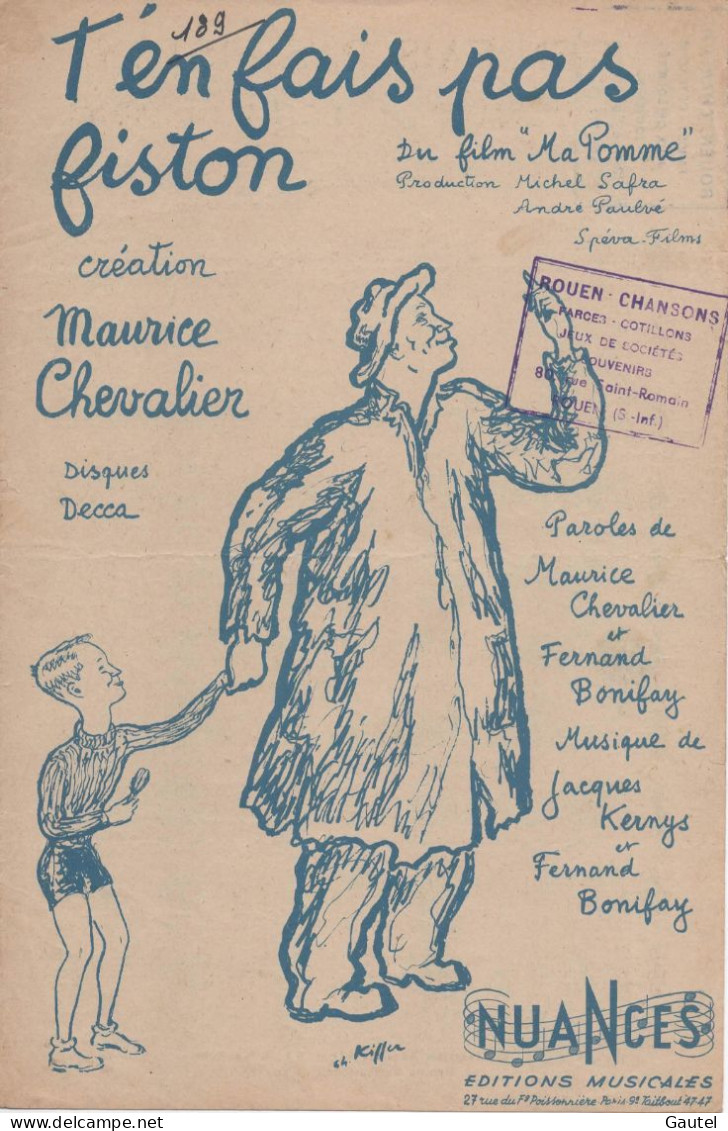 T'en fais pas
189
fiston
Du film "Ma Pomme"
Production Michel Safra
André Paulvé
Spéva-Films
création
Maurice
Chevalier
Disques
Decca
ROUEN - CHANSONS
FARCES - COTILLONS
JEUX DE SOCIÉTÉS
SOUVENIRS
80 rue Saint-Romain
ROUEN (S.-Inf.)
Paroles de
Maurice
Chevalier
et
Fernand
Bonifay
Musique de
Jacques
Kernys
et
Fernand
Bonifay
ch. Kiffer
NUANCES
EDITIONS MUSICALES
27 rue du Fg Poissonnière Paris 9e Taitbout 47-47
delcampe.net
Gautel